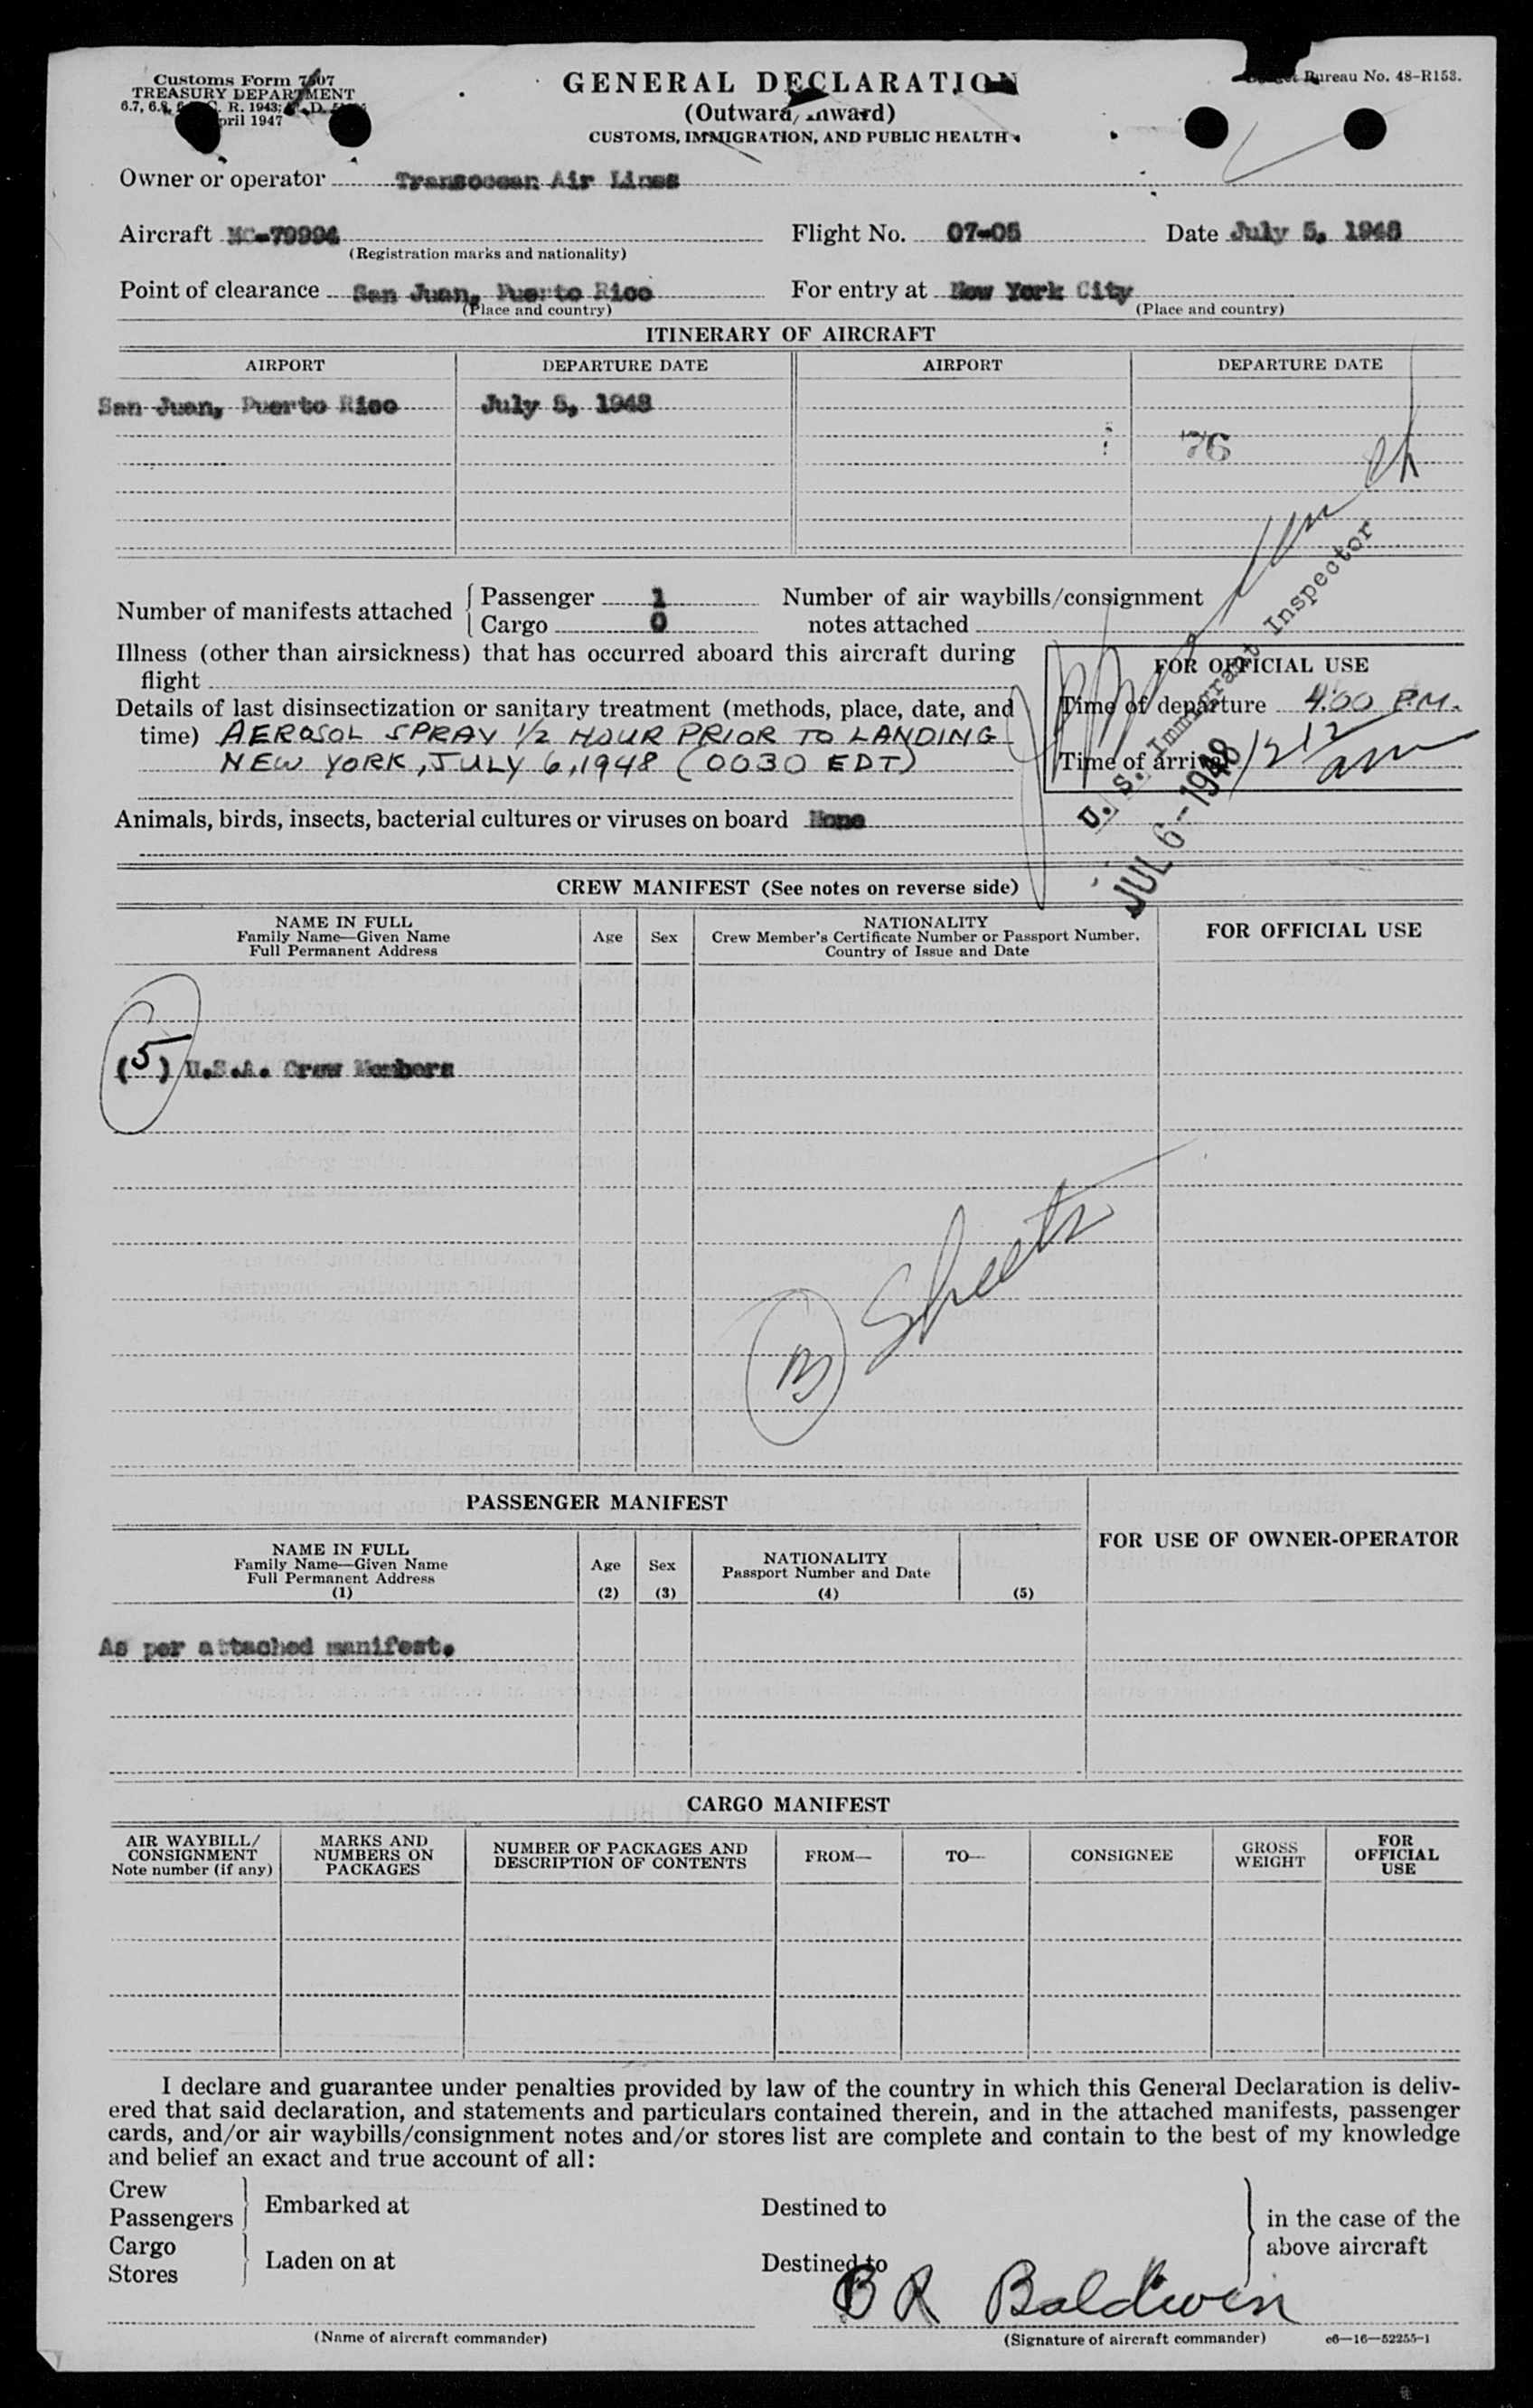 Customs Form 7507
TREASURY DEPARTMENT
April 1947
GENERAL DECLARATION
(Outward/Inward)
CUSTOMS, IMMIGRATION, AND PUBLIC HEALTH
Bureau No. 48-R153.
Owner or operator Transocean Air Lines
Aircraft NC-79994 Flight No. 07-05 Date July 5, 1948
(Registration marks and nationality)
Point of clearance San Juan, Puerto Rico For entry at New York City
(Place and country) (Place and country)
ITINERARY OF AIRCRAFT
AIRPORT DEPARTURE DATE AIRPORT DEPARTURE DATE
San Juan, Puerto Rico July 5, 1948
76
Number of manifests attached Passenger 1 Number of air waybills/consignment
Cargo 0 notes attached
Illness (other than airsickness) that has occurred aboard this aircraft during
flight
FOR OFFICIAL USE
Details of last disinsectization or sanitary treatment (methods, place, date, and
time) AEROSOL SPRAY 1/2 HOUR PRIOR TO LANDING
NEW YORK, JULY 6, 1948 (0030 EDT)
Time of departure 4:00 P.M.
Time of arrival 1212 am
U. S. Immigrant Inspector
JUL 6-1948
Animals, birds, insects, bacterial cultures or viruses on board None
CREW MANIFEST (See notes on reverse side)
NAME IN FULL
Family Name—Given Name
Full Permanent Address
Age Sex
NATIONALITY
Crew Member's Certificate Number or Passport Number,
Country of Issue and Date
FOR OFFICIAL USE
(5) U.S.A. Crew Members
Sheets
PASSENGER MANIFEST
FOR USE OF OWNER-OPERATOR
NAME IN FULL
Family Name—Given Name
Full Permanent Address
(1)
Age
(2)
Sex
(3)
NATIONALITY
Passport Number and Date
(4) (5)
As per attached manifest.
CARGO MANIFEST
AIR WAYBILL/
CONSIGNMENT
Note number (if any)
MARKS AND
NUMBERS ON
PACKAGES
NUMBER OF PACKAGES AND
DESCRIPTION OF CONTENTS
FROM—
TO—
CONSIGNEE
GROSS
WEIGHT
FOR
OFFICIAL
USE
I declare and guarantee under penalties provided by law of the country in which this General Declaration is deliv-
ered that said declaration, and statements and particulars contained therein, and in the attached manifests, passenger
cards, and/or air waybills/consignment notes and/or stores list are complete and contain to the best of my knowledge
and belief an exact and true account of all:
Crew
Passengers Embarked at Destined to in the case of the
Cargo above aircraft
Stores Laden on at Destined to
B R Baldwin
(Name of aircraft commander) (Signature of aircraft commander) c6—16—52255-1